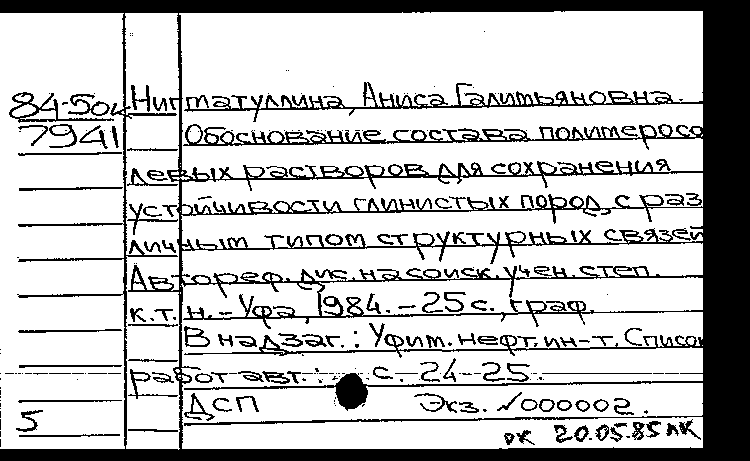 84-5ок Нигматуллина, Аниса Галитьяновна.
7941 Обоснование состава полимеросо
левых растворов для сохранения
устойчивости глинистых пород, с раз
личным типом структурных связей
Автореф. дис. на соиск. учен. степ.
к.т.н. - Уфа, 1984. - 25 с., граф.
В надзаг.: Уфим. нефт. ин-т. Список
работ авт.: с. 24-25.
ДСП Экз. №000002.
5
рк 20.05.85 лк